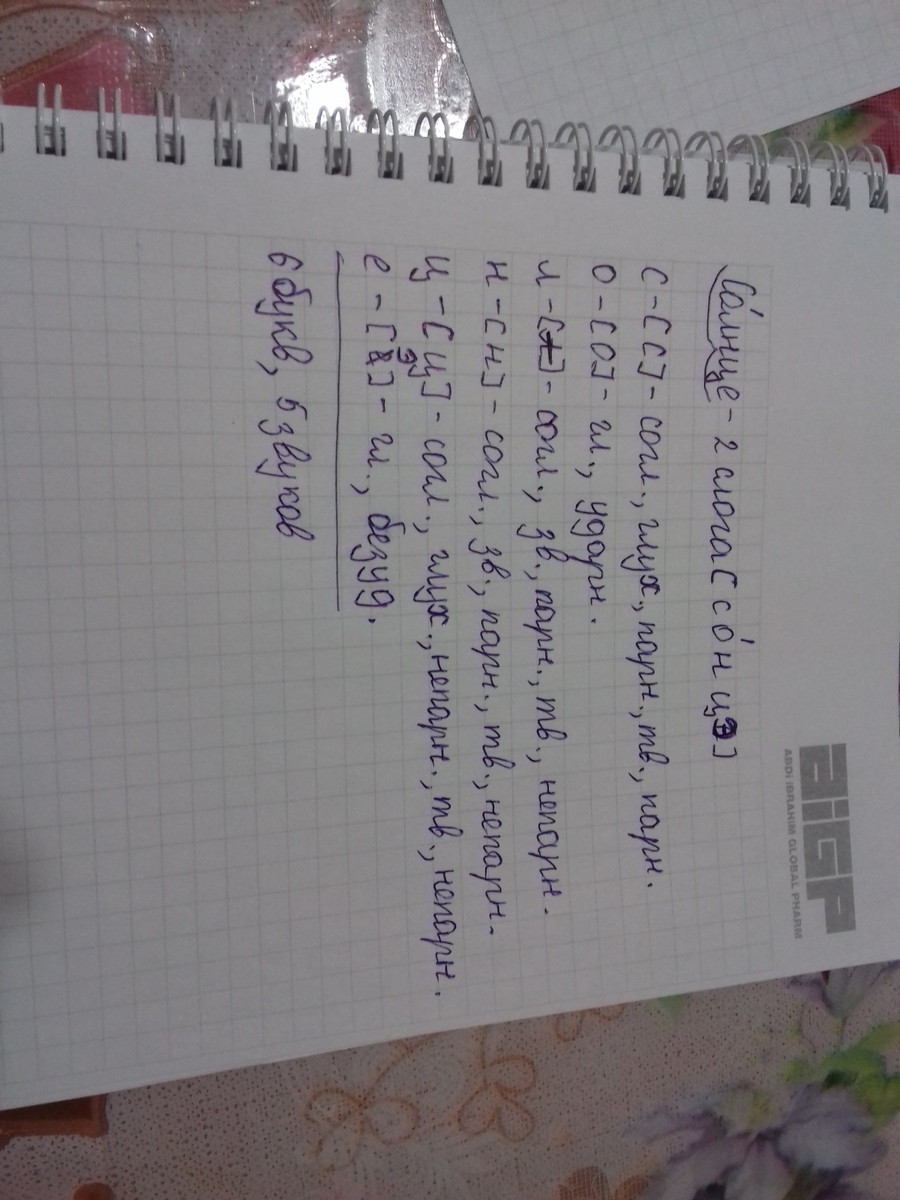 aiGP
ABDİ İBRAHİM GLOBAL PHARM
Со́лнце - 2 слога [со́нцэ]
С - [С] - согл., глух., парн., тв., парн.
О - [О] - гл., ударн.
Л - [-] - согл., зв., парн., тв., непарн.
Н - [Н] - согл., зв., парн., тв., непарн.
Ц - [Ц] - согл., глух., непарн., тв., непарн.
е - [э] - гл., безуд.
6 букв, 5 звуков